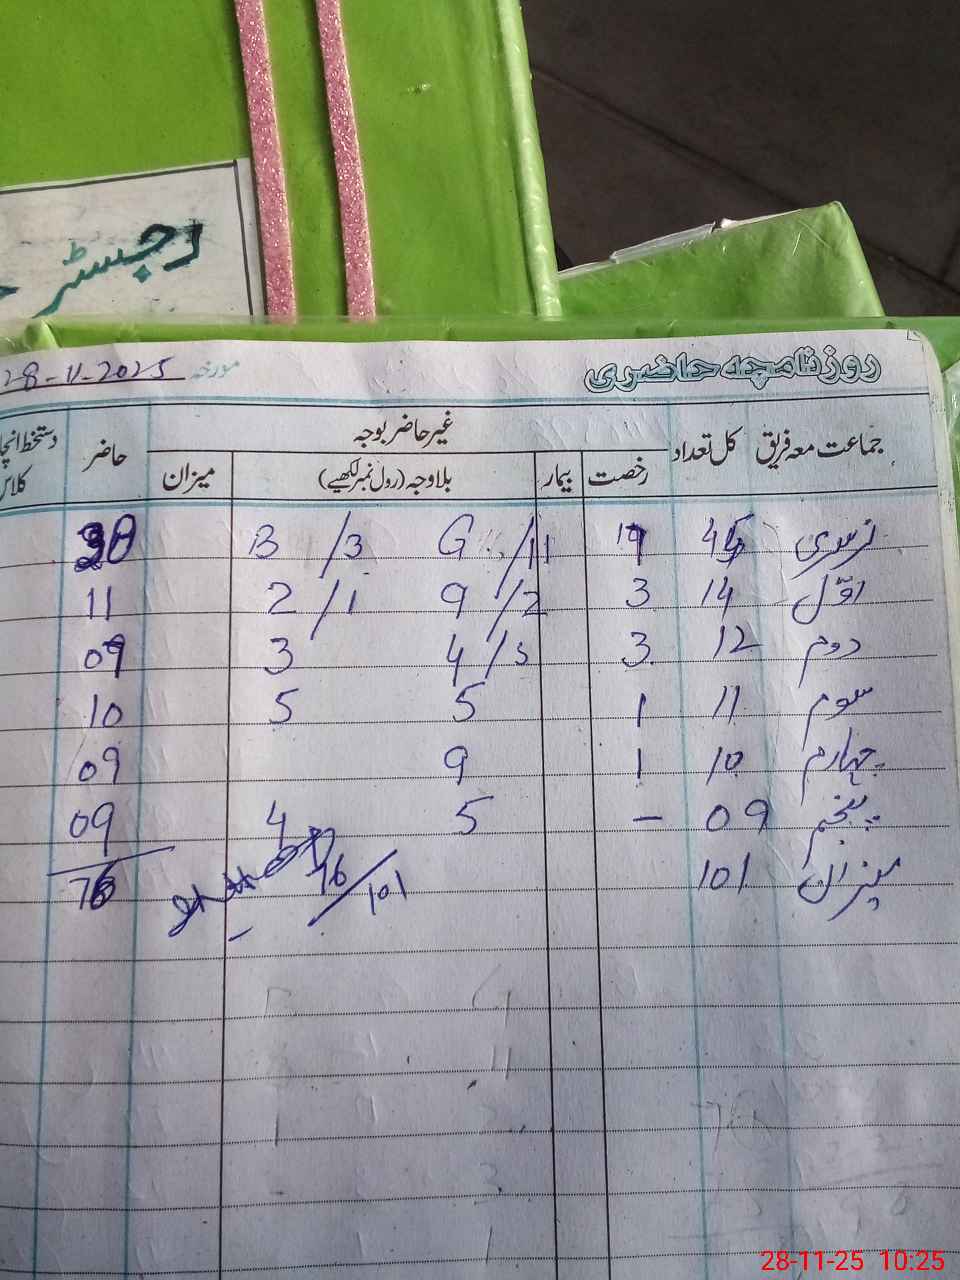 رجسٹر
روزنامچہ حاضری مورخہ 28-11-2025
جماعت معہ فریق کل تعداد غیر حاضر بوجہ حاضر دستخط انچا
رخصت بیمار بلاوجہ (رول نمبر لکھیے) میزان کلاس
نرسری 45 G /11 B /3
اوّل 14 3 9 /2 2 /1 11
دوم 12 3 4 /3 3 09
سوم 11 1 5 5 10
چہارم 10 1 9 09
پنجم 09 – 5 4 09
میزان 101 76/101 76
28-11-25 10:25